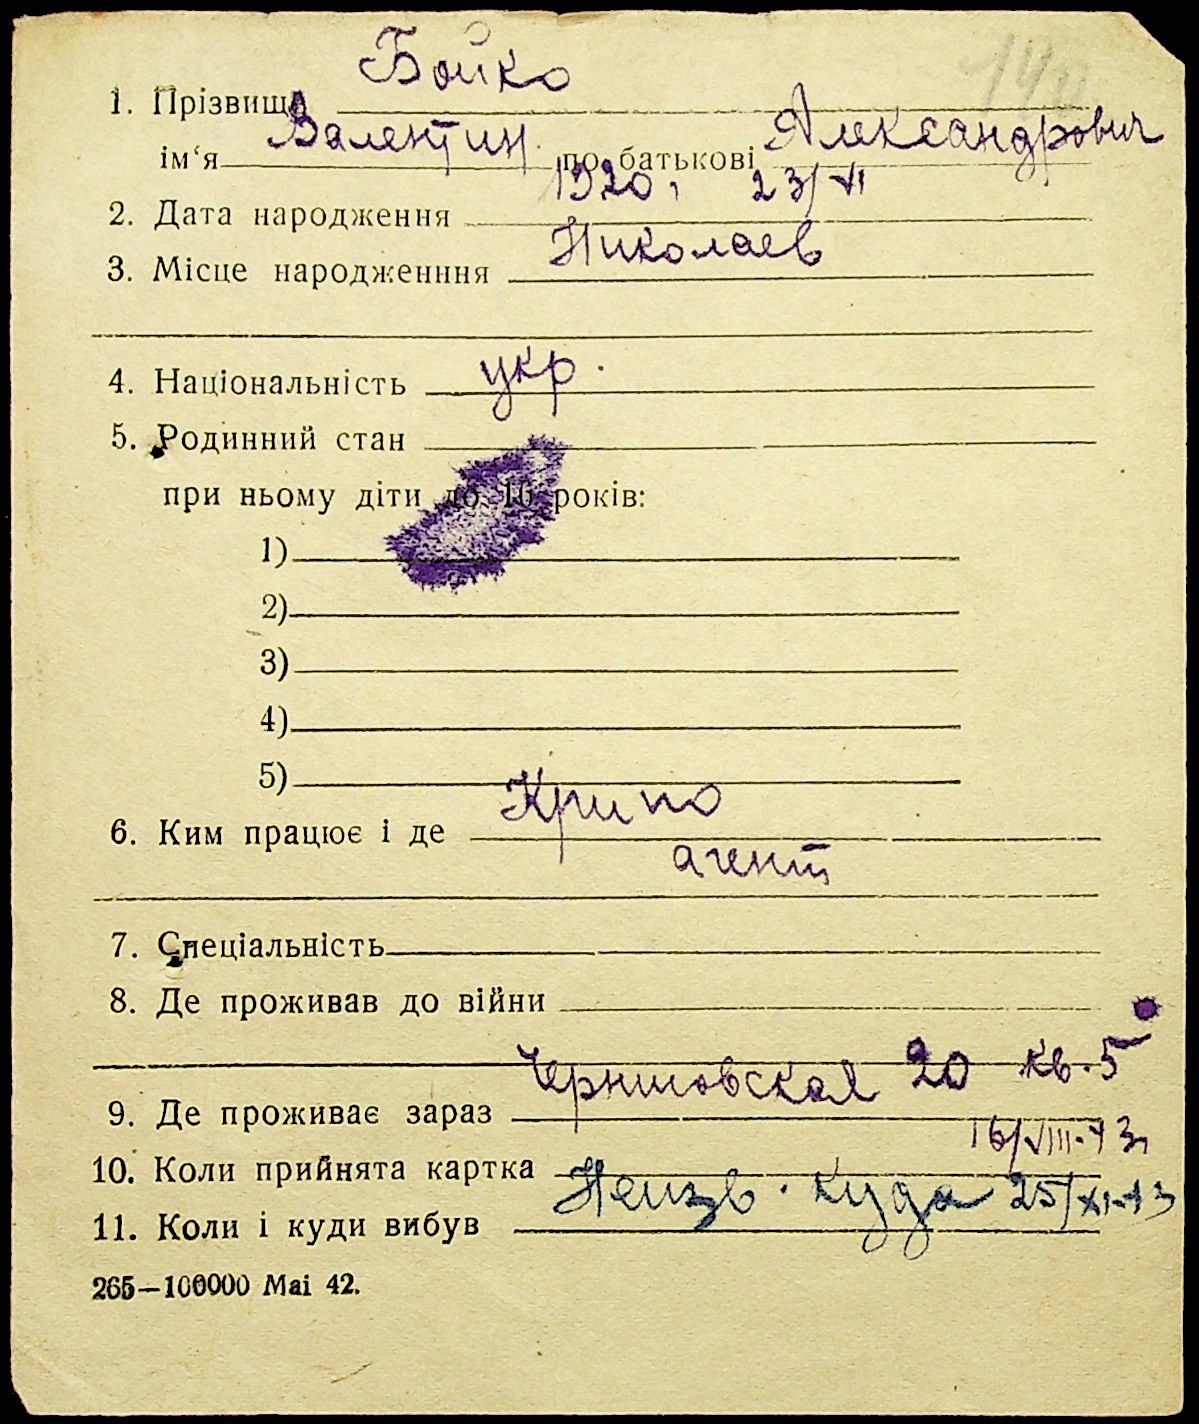 Бойко
1. Прізвище
Валентин Александрович
ім‘я по батькові
1920, 23/VI
2. Дата народження
Николаев
3. Місце народженння
4. Національність укр.
5. Родинний стан
при ньому діти до 16 років:
1)
2)
3)
4)
5)
Крипо
6. Ким працює і де
агент
7. Спеціальність
8. Де проживав до війни
20 кв. 5
9. Де проживає зараз
16/VIII-43
10. Коли прийнята картка
Неизв. куда 25/XI-43
11. Коли і куди вибув
265—100000 Mai 42.